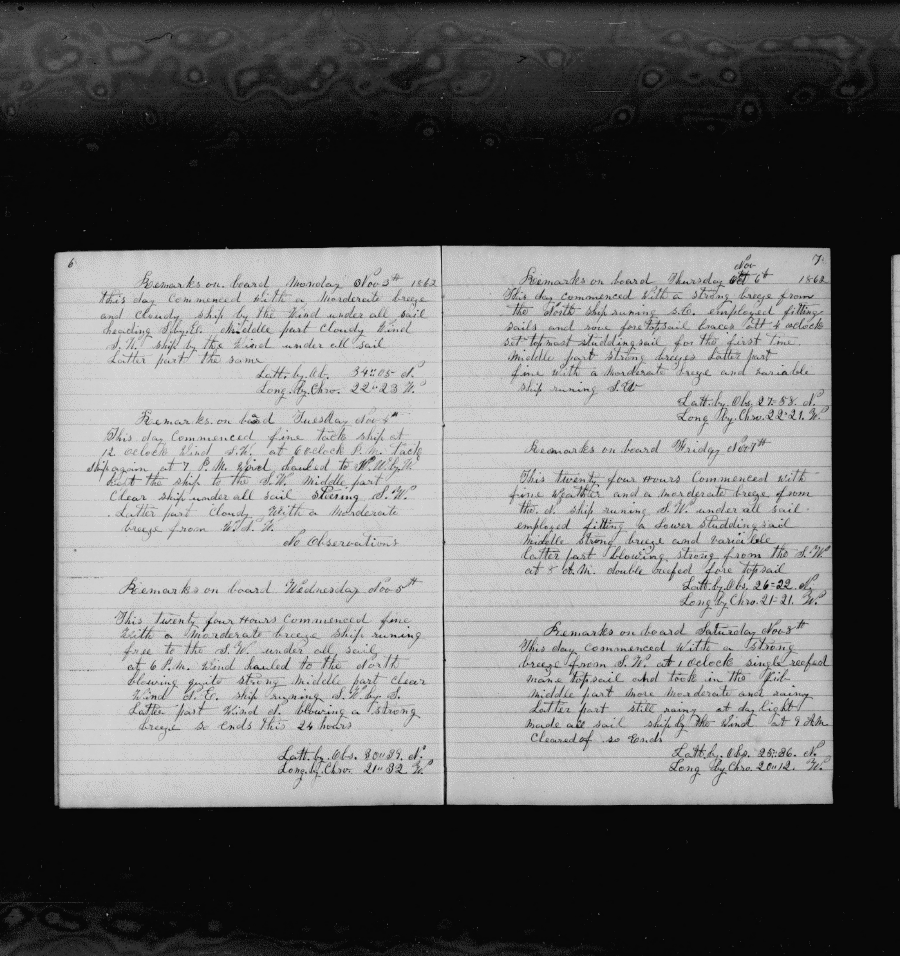 6
Remarks on board Monday Nov 3th 1862
this day commenced with a morderate breeze
and cloudy ship by the wind under all sail
heading S.by.E. Middle part Cloudy Wind
S.W. ship by the Wind under all sail
Latter part the same
Latt. by. Ob. 34"05 N.
Long. by. Chro. 22"23 W.
Remarks. on board Tuesday Nov 4th
This day Commenced fine tack ship at
12 oclock Wind S.W. at 6 oclock P.M. tack
ship again at 7 P.M. Wind hauled to N.W. by W.
kept the ship to the S.W. Middle part
Clear ship under all sail Stering S.W.
Latter part Cloudy With a Morderate
breeze from W.S.W.
No Observations
Remarks on board Wednesday Nov 5th
This twenty four Hours Commenced fine
With a morderate breeze ship runing
free to the S.W. under all sail
at 6 P.M. Wind hauled to the North
blowing quite strong middle part clear
Wind N.E. ship runing S.W. by S.
Latter part Wind N. blowing a strong
breeze so ends this 24 hours
Latt. by. Obs. 30"39. N.
Long. by. Chro. 21"32 W.
7
Nov
Remarks on board Thursday Oct 6th 1862
This day commenced With a strong breeze from
the North ship runing S.E. employed fitting
sails and rove foretopsail braces att 4 oclock
set topmast studdingsail for the first time.
Middle part strong breezes Latter part
fine with a morderate breeze and variable
ship runing S.W
Latt. by Obs. 27=58. N.
Long by. Chro. 22"21. W.
Remarks on board Friday Nov 7th
This twenty four Hours Commenced with
fine weather and a morderate breeze from
the N. ship runing S.W. under all sail.
employed fitting a Lower studdingsail
Middle strong breeze and variable
Latter part blowing strong from the S.W.
at 8 A.M. double reefed fore topsail
Latt. by. Obs. 26=22. N.
Long by Chro. 21=21. W.
Remarks on board Saturday Nov 8th
This day commenced With a strong
breeze from S.W. at 1 oclock single reefed
mane topsail and took in the Jib
middle part more morderate and rainy
Latter part still rainy at daylight
made all sail ship by the Wind at 9 A.M.
Cleared of so Ends
Latt. by. Obs. 25"36. N.
Long by Chro. 20"12. W.